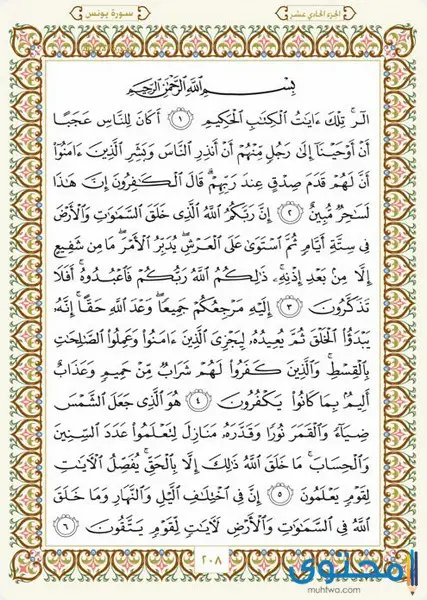 الجزء الحادي عشر
سورة يونس
بِسْمِ اللَّهِ الرَّحْمَٰنِ الرَّحِيمِ
الٓر ۚ تِلْكَ ءَايَٰتُ الْكِتَٰبِ الْحَكِيمِ ١ أَكَانَ لِلنَّاسِ عَجَبًا
أَنْ أَوْحَيْنَآ إِلَىٰ رَجُلٍ مِّنْهُمْ أَنْ أَنذِرِ النَّاسَ وَبَشِّرِ الَّذِينَ ءَامَنُوٓا۟
أَنَّ لَهُمْ قَدَمَ صِدْقٍ عِندَ رَبِّهِمْ ۗ قَالَ الْكَٰفِرُونَ إِنَّ هَٰذَا
لَسَٰحِرٌ مُّبِينٌ ٢ إِنَّ رَبَّكُمُ اللَّهُ الَّذِى خَلَقَ السَّمَٰوَٰتِ وَالْأَرْضَ
فِى سِتَّةِ أَيَّامٍ ثُمَّ اسْتَوَىٰ عَلَى الْعَرْشِ ۖ يُدَبِّرُ الْأَمْرَ ۖ مَا مِن شَفِيعٍ
إِلَّا مِنۢ بَعْدِ إِذْنِهِۦ ۚ ذَٰلِكُمُ اللَّهُ رَبُّكُمْ فَاعْبُدُوهُ ۚ أَفَلَا
تَذَكَّرُونَ ٣ إِلَيْهِ مَرْجِعُكُمْ جَمِيعًا ۖ وَعْدَ اللَّهِ حَقًّا ۚ إِنَّهُۥ
يَبْدَؤُا۟ الْخَلْقَ ثُمَّ يُعِيدُهُۥ لِيَجْزِىَ الَّذِينَ ءَامَنُوا۟ وَعَمِلُوا۟ الصَّٰلِحَٰتِ
بِالْقِسْطِ ۚ وَالَّذِينَ كَفَرُوا۟ لَهُمْ شَرَابٌ مِّنْ حَمِيمٍ وَعَذَابٌ
أَلِيمٌۢ بِمَا كَانُوا۟ يَكْفُرُونَ ٤ هُوَ الَّذِى جَعَلَ الشَّمْسَ
ضِيَآءً وَالْقَمَرَ نُورًا وَقَدَّرَهُۥ مَنَازِلَ لِتَعْلَمُوا۟ عَدَدَ السِّنِينَ
وَالْحِسَابَ ۚ مَا خَلَقَ اللَّهُ ذَٰلِكَ إِلَّا بِالْحَقِّ ۚ يُفَصِّلُ الْءَايَٰتِ
لِقَوْمٍ يَعْلَمُونَ ٥ إِنَّ فِى اخْتِلَٰفِ الَّيْلِ وَالنَّهَارِ وَمَا خَلَقَ
اللَّهُ فِى السَّمَٰوَٰتِ وَالْأَرْضِ لَءَايَٰتٍ لِّقَوْمٍ يَتَّقُونَ ٦
٢٠٨
محتوى
muhtwa.com